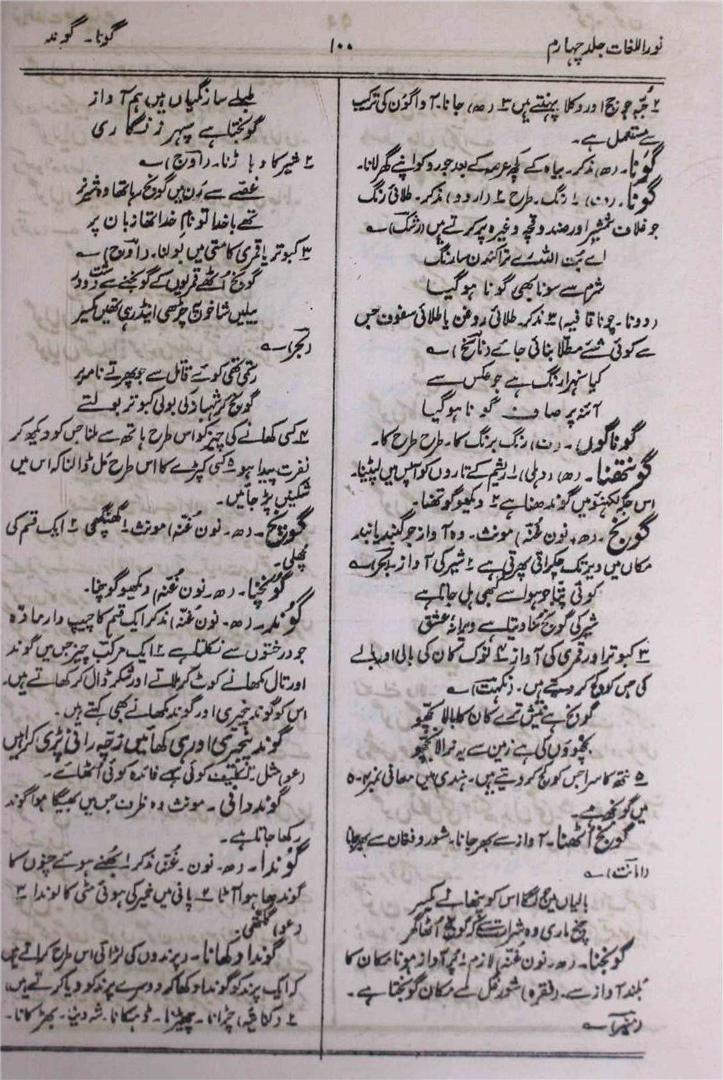 نوراللغات جلد چہارم
۱۰۰
گونا۔ گوند
۲ جُبّہ جو جج اور وکلا پہنتے ہیں ۳ (ھ) جانا۔ آواگون کی ترکیب
سے مستعمل ہے۔
گونا۔ (ھ) مذکر۔ بیاہ کے کچھ عرصہ کے بعد جورو کو اپنے گھر لانا۔
گونا۔ (ف) ۱ رنگ۔ طرح ۲ (اردو) مذکر۔ طلائی رنگ
جو غلاف شمشیر اور صندوقچہ وغیرہ پر کرتے ہیں (رشک) ؎
اے بُت اللہ رے ترا کندن سا رنگ
شرم سے سونا بھی گونا ہو گیا
(دونا۔ چونا قافیہ) ۳ مذکر۔ طلائی روغن یا طلائی سفوف جس
سے کوئی شئے مطلّا بنائی جائے (ناسخ) ؎
کیا سنہرا رنگ ہے جو عکس سے
آئنہ پر صاف گونا ہو گیا
گوناگوں۔ (ف) رنگ برنگ کا۔ طرح طرح کا۔
گونتھنا۔ (ھ) (دہلی) ۱ ریشم کے تاروں کو آپس میں لپیٹنا۔
اس جگہ لکھنؤ میں گوندھنا ہے ۲ دیکھو گوتھنا۔
گونج۔ (ھ۔ نون غنہ) مونث۔ وہ آواز جو گنبد یا بند
مکان میں دیر تک چکراتی پھرتی ہے ۲ شیر کی آواز۔ (بحر) ؎
کوئی پتّا جو ہوا سے کبھی ہل جاتا ہے
شیر کی گونج سُنا دیتا ہے ویرانۂ عشق
۳ کبوتر اور قمری کی آواز ۴ نوک کان کی بالی اور بالے
کی جس کو موڑ کر دیتے ہیں۔ (نکہت) ؎
گونج بے نیش ترے کان کا بالا بچھو
بچھوؤں کی ہے زمیں سے یہ نرالا بچھو
۵ نتھ کا سرا جس کو گونج کر دیتے ہیں۔ ہندی میں معانی نمبر ۴-۵
میں گونجھ ہے۔
گونج اُٹھنا۔ آواز سے بھر جانا۔ شور و فغان سے بھر جانا
(امانت) ؎
بالیاں میں جو لگا اس کو پنھانے کمسیر
چیخ ماری وہ شرارت سے کہ گونج اُٹھا گھر
گونجنا۔ (ھ۔ نون غنہ) لازم ۱ پُر آواز ہونا مکان کا
بلند آواز سے۔ (فقرہ) شور و غل سے مکان گونجتا ہے۔
(منیر) ؎
طبلے سارنگیاں ہیں ہم آواز
گونجتا ہے سپہر زنگاری
۲ شیر کا دہاڑنا۔ (اوج) ؎
غصے سے رَن میں گونج رہا تھا وہ شیر نر
تھے باخدا تو نام خدا تھا زبان پر
۳ کبوتر یا قمری کا مستی میں بولنا۔ (اوج) ؎
گونج اُٹھے قمریوں کے گونجنے سے دشت و در
بیلیں شاخوں پہ چڑھی اینڈ رہی تھیں
(بحر) ؎
رستمی تھی کوئے قاتل سے جو پھرتے نامہ بر
گونج کر شہباز کی بولی کبوتر بولتے
۴ کسی کھانے کی چیز کو اس طرح ہاتھ سے ملنا جس کو دیکھ کر
نفرت پیدا ہو۔ ۵ کسی کپڑے کا اس طرح مَل ڈالنا کہ اس میں
شکنیں پڑ جائیں۔
گونچ۔ (ھ۔ نون غنہ) مونث ۱ گھنگچی ۲ ایک قسم کی
مچھلی۔
گونچنا۔ (ھ۔ نون غنہ) دیکھو گوچنا۔
گوند۔ (ھ۔ نون غنہ) مذکر ایک قسم کا چیپ دار مادّہ
جو درختوں سے نکلتا ہے ۲ ایک مرکب چیز جس میں گوند
اور تال مکھانے کوٹ کر ملاتے اور شکر ڈال کر کھاتے ہیں۔
اس کو گوند پنجیری اور گوند مکھانے بھی کہتے ہیں۔
گوند پنجیری اوری کھائیں زچہ رانی پڑی کراہیں
(عو) مثل۔ تکلیف کوئی سہے فائدہ کوئی اُٹھائے۔
گوند دانی۔ مونث وہ ظرف جس میں بھیگا ہوا گوند
رکھا جاتا ہے۔
گوندا۔ (ھ۔ نون۔ غنہ) مذکر ۱ بھنے ہوئے چنوں کا
گوندھا ہوا آٹا ۲ پانی میں خمیر کی ہوئی مٹی کا لوندا ۳
(عو) گلتھی۔
گوندا دکھانا۔ (پرندوں کی لڑائی اس طرح کراتے ہیں
کہ ایک پرند کو گوندا دکھا کر دوسرے پرند کو دیا کرتے ہیں)
۲ (کنایۃً) چڑانا۔ چھیڑنا۔ شہ دینا۔ بھڑکانا۔